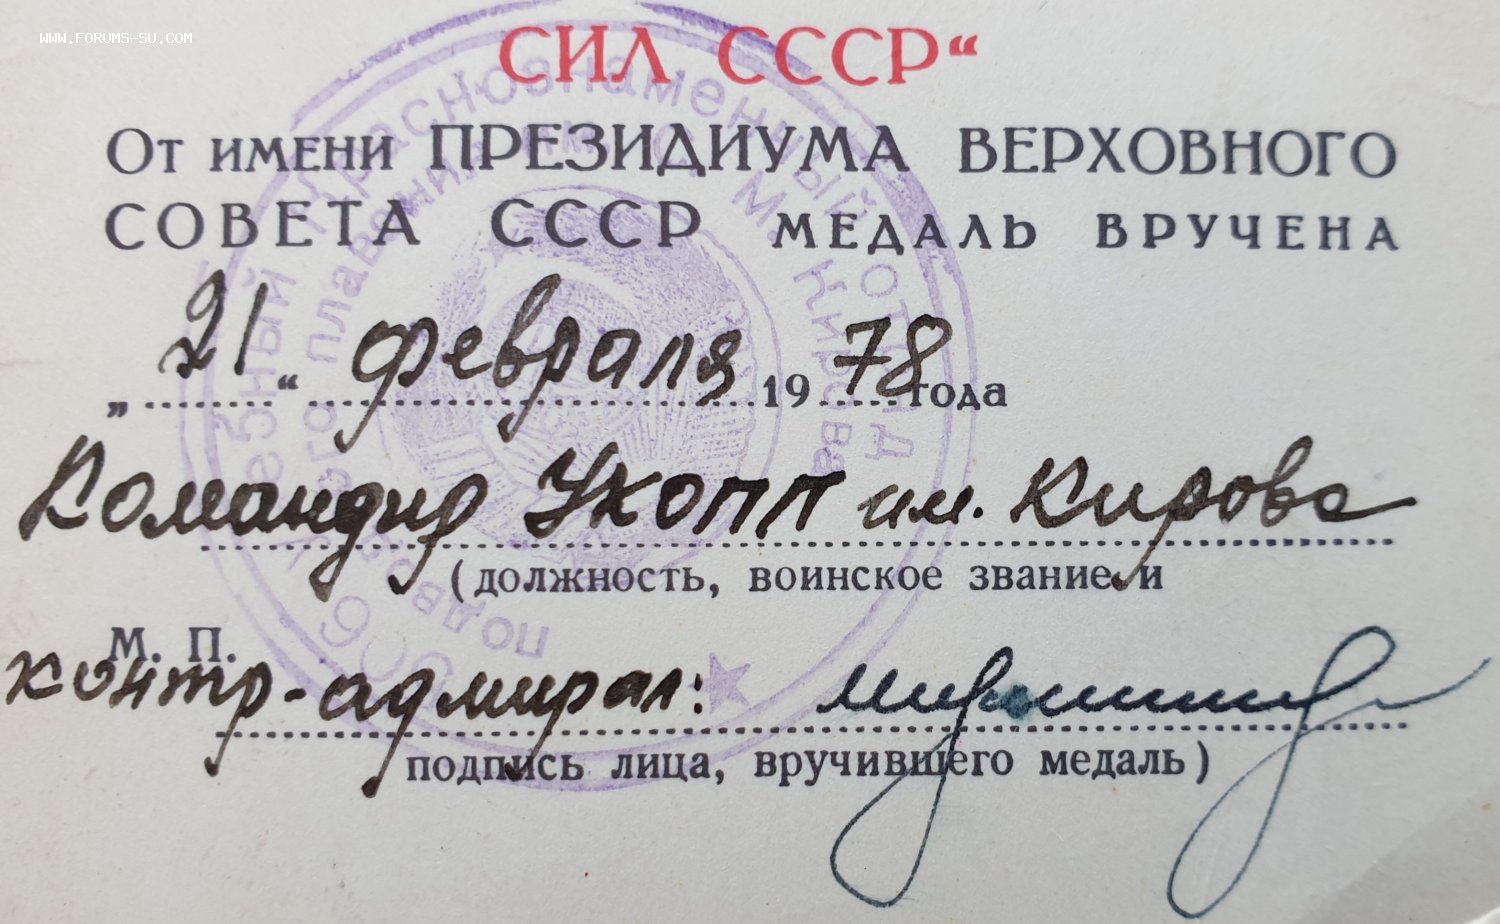 WWW.FORUMS-SU.COM
СИЛ СССР“
От имени ПРЕЗИДИУМА ВЕРХОВНОГО
СОВЕТА СССР МЕДАЛЬ ВРУЧЕНА
„21“ февраля 1978 года
Командир УКОПП им. Кирова
(должность, воинское звание и
М. П.
контр-адмирал:
подпись лица, вручившего медаль)
Краснознаменный отряд
подводного плавания им. С. М. Кирова